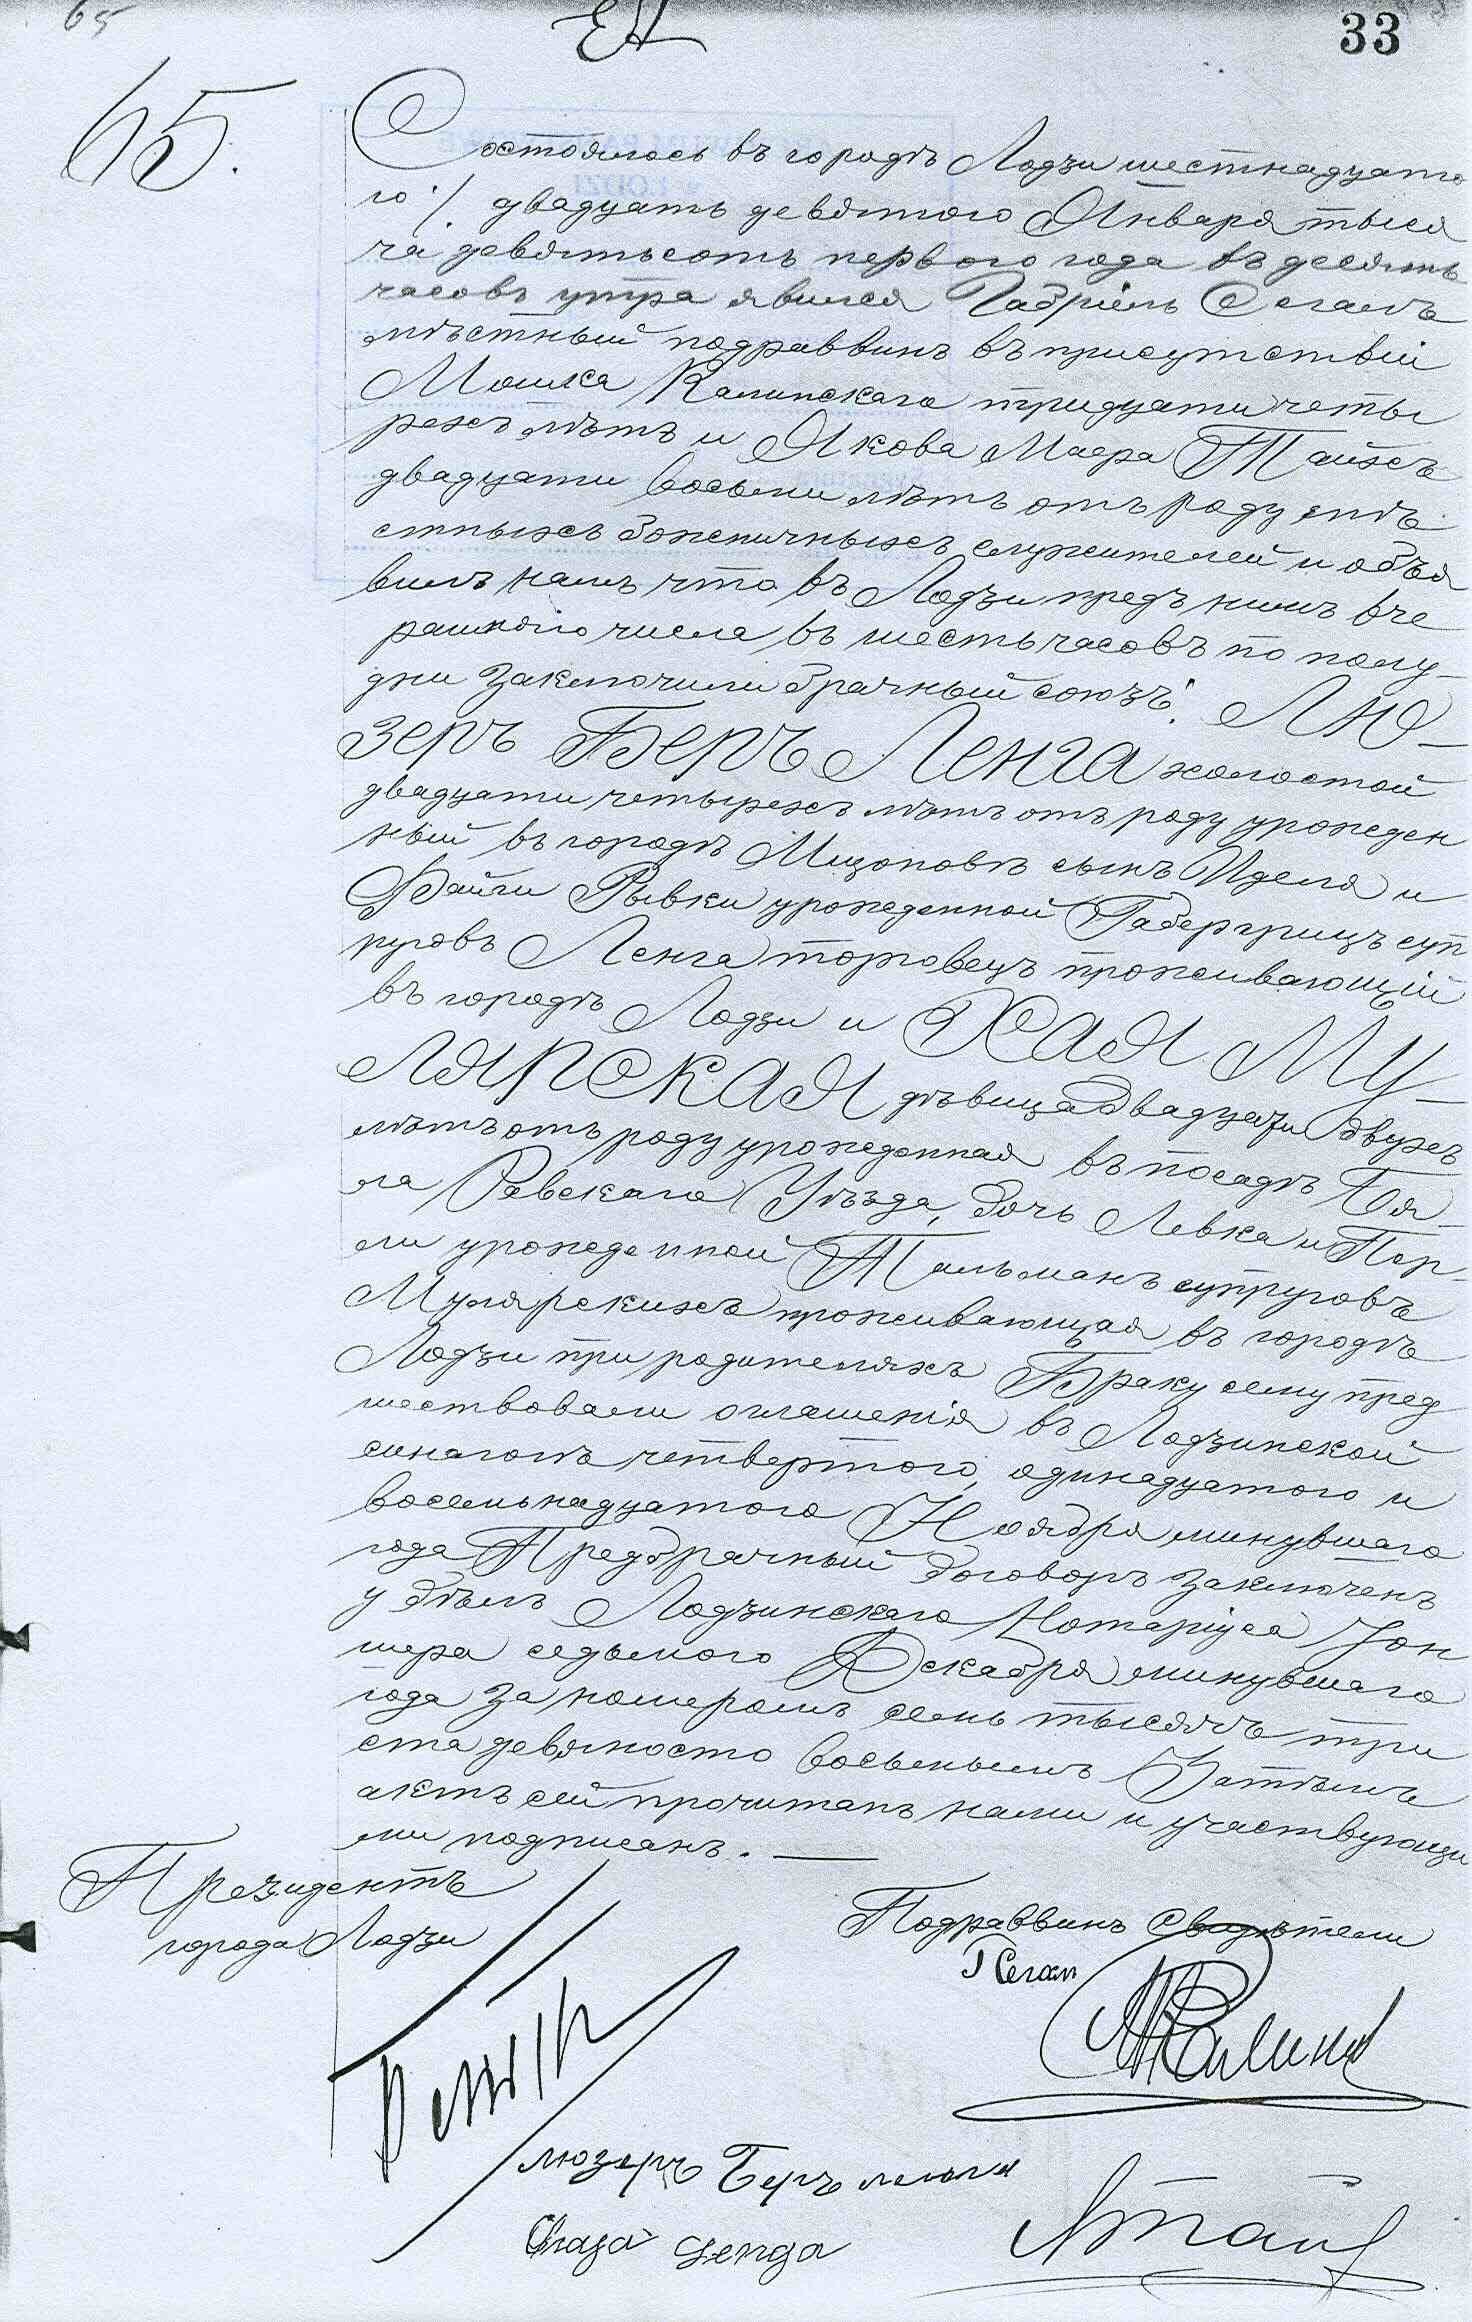 65
33
65.
Состоялось въ городѣ Лодзи шестнадцата
го /. двадцать девятого Января тыся
ча девятьсотъ первого года въ десять
часовъ утра явился Габріель Сегалъ
мѣстный подраввинъ въ присутствіи
Мошка Калинскаго тридцати четы
рехъ лѣтъ и Якова Маера Тайхъ
двадцати восьми лѣтъ отъ роду мѣ
стныхъ божничныхъ служителей и объя
вилъ намъ что въ Лодзи предъ нимъ вче
рашняго числа въ шесть часовъ по полу-
дни заключили брачный союзъ: Лю-
зеръ Беръ Ленга холостой
двадцати четырехъ лѣтъ отъ роду урожден
ный въ городѣ Мщоновѣ сынъ Иделя и
Файги Рывки урожденной Габергрицъ суп
руговъ Ленга торговецъ проживающій
въ городѣ Лодзи и Хая Му-
лярская дѣвица двадцати двухъ
лѣтъ отъ роду урожденная въ посадѣ Бя-
ла Равскаго Уѣзда, дочь Левка и Пер-
ли урожденной Тальманъ супруговъ
Мулярскихъ проживающая въ городѣ
Лодзи при родителяхъ Браку сему пред
шествовали оглашенія въ Лодзинской
синагогѣ четвертого, одинадцатого и
восемьнадцатого Ноября минувшаго
года Предбрачный договоръ заключенъ
у дѣлъ Лодзинскаго Нотаріуса Іон
шера седьмого Декабря минувшаго
года за номеромъ семь тысячъ три
ста девяносто восьмымъ Затѣмъ
актъ сей прочитанъ нами и участвующи
ми подписанъ. —
Президентъ
города Лодзи
Подраввинъ Свидѣтели
Г Сегал
люзеръ Беръ ленга
Chaja Lenga